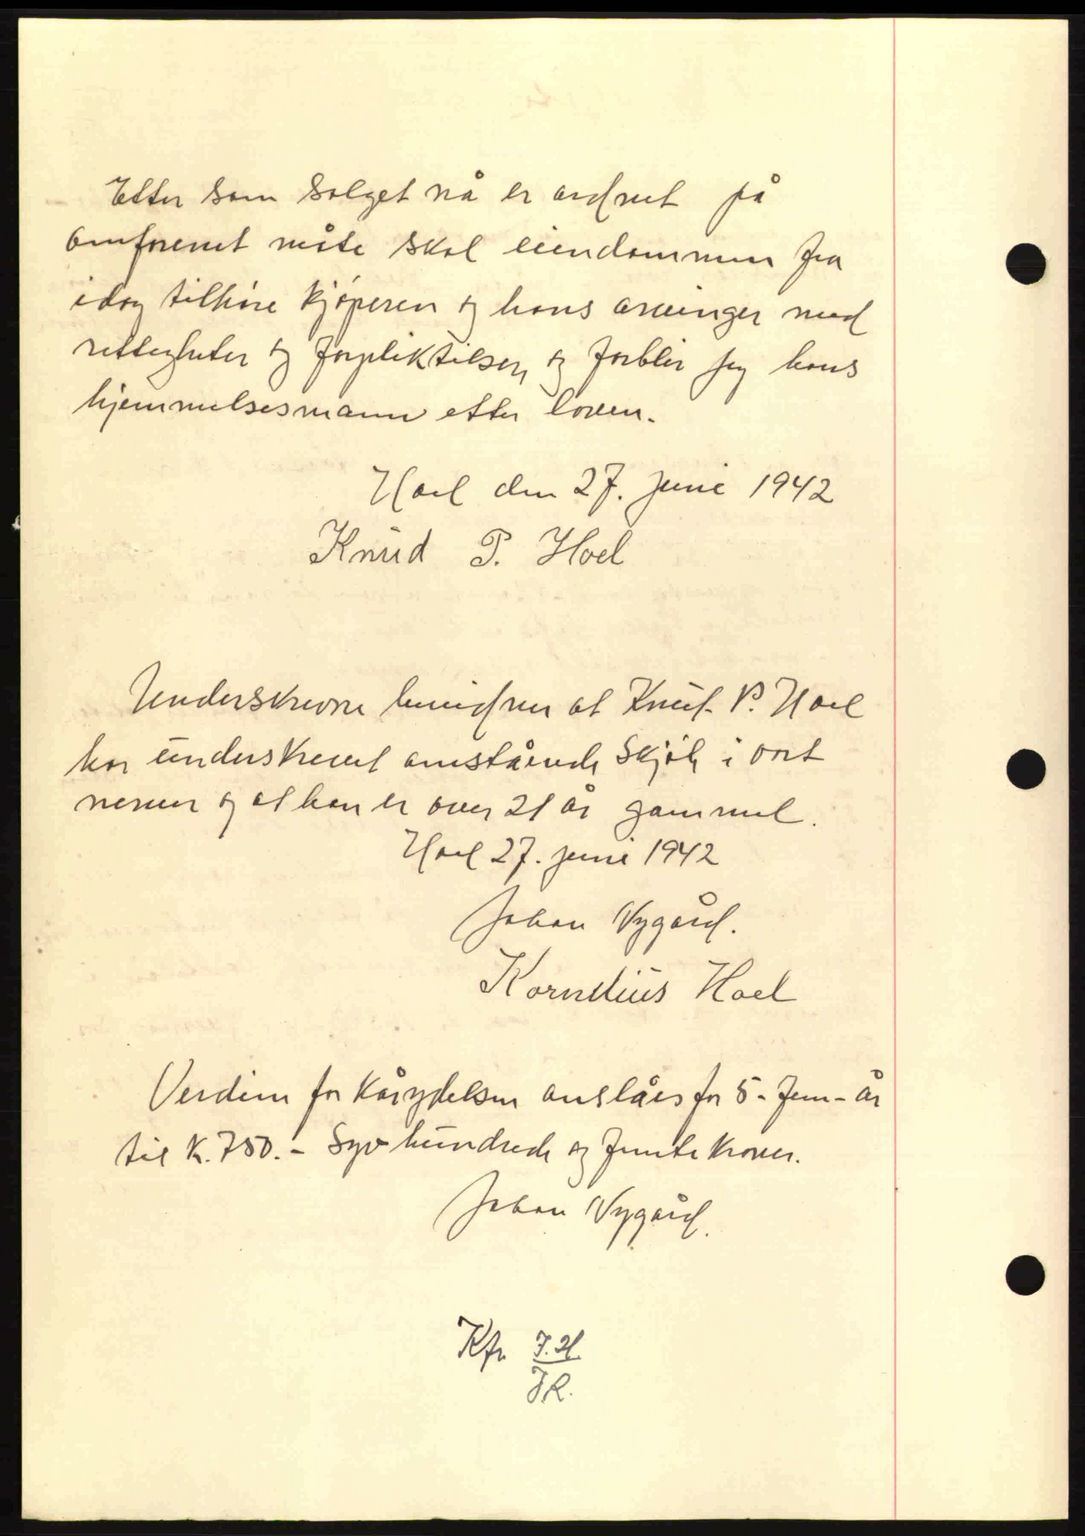 Etter som salget nå er ordnet på
omforenet måte skal eiendommen fra
idag tilhøre kjøperen og hans arvinger med
rettigheter og forpliktelser, og forblir jeg hans
hjemmelsesmann etter loven.
Hoel den 27. juni 1942
Knud P. Hoel
Underskrevne bevidner at Knut P. Hoel
har underskrevet omstående skjøte i vort
nerver og at han er over 21 år gammel.
Hoel 27. juni 1942
Johan Nygård.
Kornelius Hoel
Verdien for kårytelsen anslåes for 5 - fem - år
til k. 750.- Syv hundrede og femti kroner.
Johan Nygård.
Kfr.
JR.